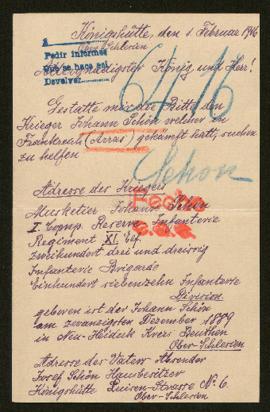 Königshütte, den 1 Februar 1916
Ober Schlesien
Pedir informes
Que se hace así
Devolver
Allergnädigster König und Herr!
6416
Gestatte mir die Bitte den
Krieger Johann Schön welcher in
Frankreich (Arras) gekämpft hatte, suchen
zu helfen
Schon
Adresse des Kriegers
Musketier Johann Schön
I Comp. Reserve Infanterie
Regiment XI Elf
Zweihundert drei und dreissig
Infanterie Brigade
Einhundert siebenzehn Infanterie
Division
geboren ist der Johann Schön
am zwanzigsten Dezember 1889
in Neu-Heiduk Kreis Beuthen
Ober-Schlesien
Adresse des Vaters
Josef Schön Hausbesitzer
Königshütte Luisen-Strasse N° 6.
Ober-Schlesien